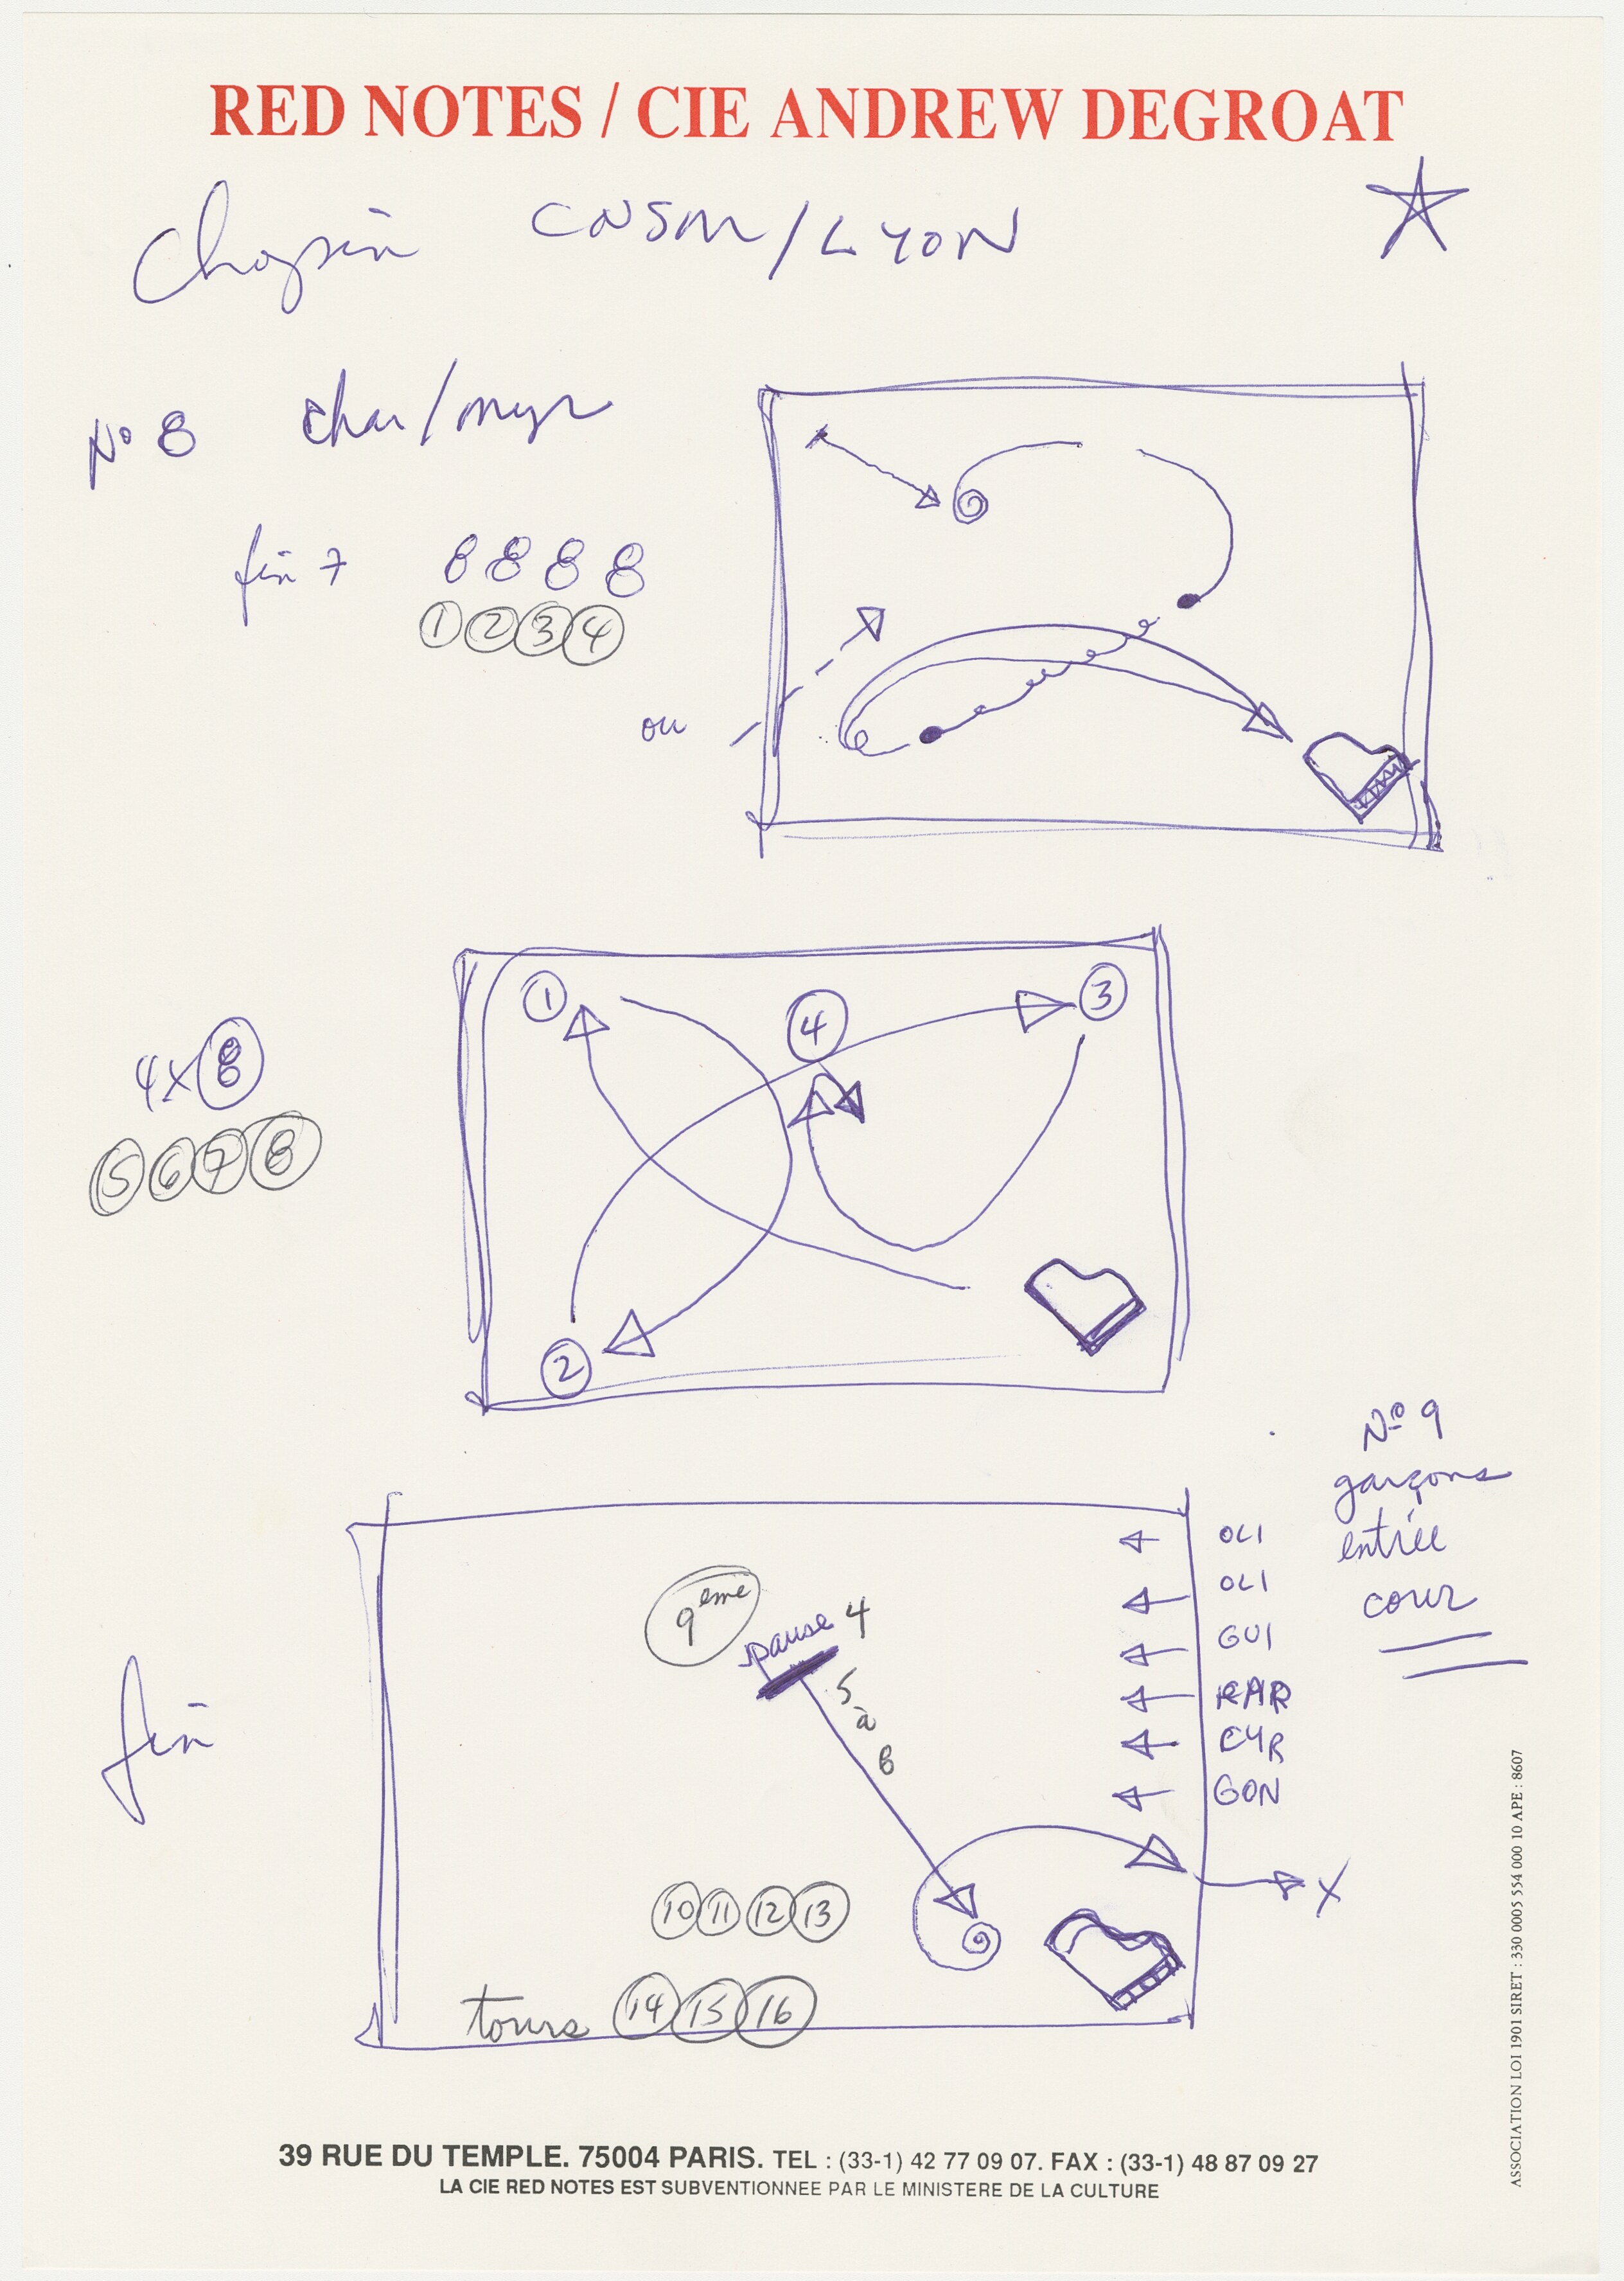 RED NOTES / CIE ANDREW DEGROAT
Chopin CNSM/LYON
No 8 char/myr
fin 7 8 8 8 8
1 2 3 4
ou
1 4 3
4x8
5 6 7 8
2
No 9
garçons
entrée
cour
OLI
OLI
GUI
RAR
CYR
GON
9eme
pause 4
5
à
8
fin
X
10 11 12 13
tours 14 15 16
39 RUE DU TEMPLE. 75004 PARIS. TEL : (33-1) 42 77 09 07. FAX : (33-1) 48 87 09 27
LA CIE RED NOTES EST SUBVENTIONNEE PAR LE MINISTERE DE LA CULTURE
ASSOCIATION LOI 1901 SIRET : 330 0005 554 000 10 APE : 8607